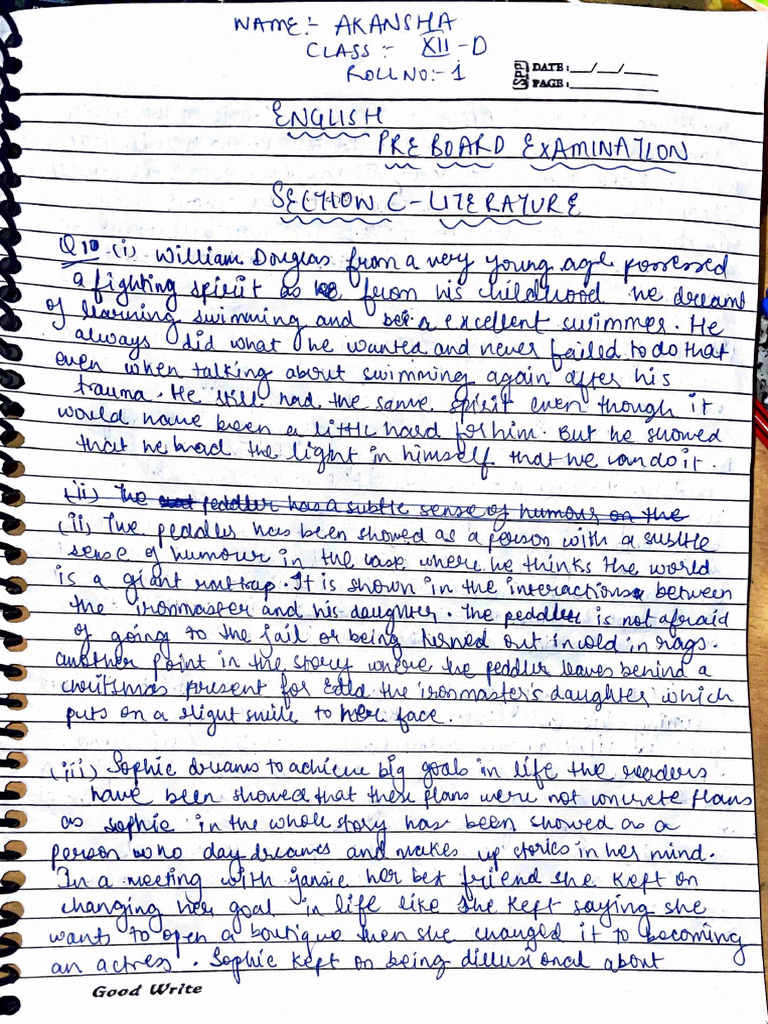 NAME:- AKANSHA
CLASS:- XII-D
ROLL NO:-1
SPP DATE:__/__/__
PAGE:
ENGLISH
PREBOARD EXAMINATION
SECTION C-LITERATURE
Q10 (i) William Douglas from a very young age possessed
a fighting spirit as from his childhood he dreams
of learning swimming and a excellent swimmer. He
always did what he wanted and never failed to do that
even when talking about swimming again after his
trauma. He still had the same spirit even though it
would have been a little hard for him. But he showed
that he had the light in himself that he can do it.
(ii) The peddler has a subtle sense of humour on the
(ii) The peddler has been showed as a person with a subtle
sense of humour in the case where he thinks the world
is a giant rattrap. It is shown in the interactions between
the ironmaster and his daughter. The peddler is not afraid
of going to the jail or being turned out in cold in rags.
another point in the story where the peddler leaves behind a
christmas present for Edla the ironmaster's daughter which
puts on a slight smile to her face.
(iii) Sophie dreams to achieve big goals in life the readers
have been showed that these plans were not concrete plans
as sophie in the whole story has been showed as a
person who day dreams and makes up stories in her mind.
In a meeting with jansie her best friend she kept on
changing her goal in life like she kept saying she
wants to open a boutique then she changed it to becoming
an actress. Sophie kept on being dillusional about
Good Write